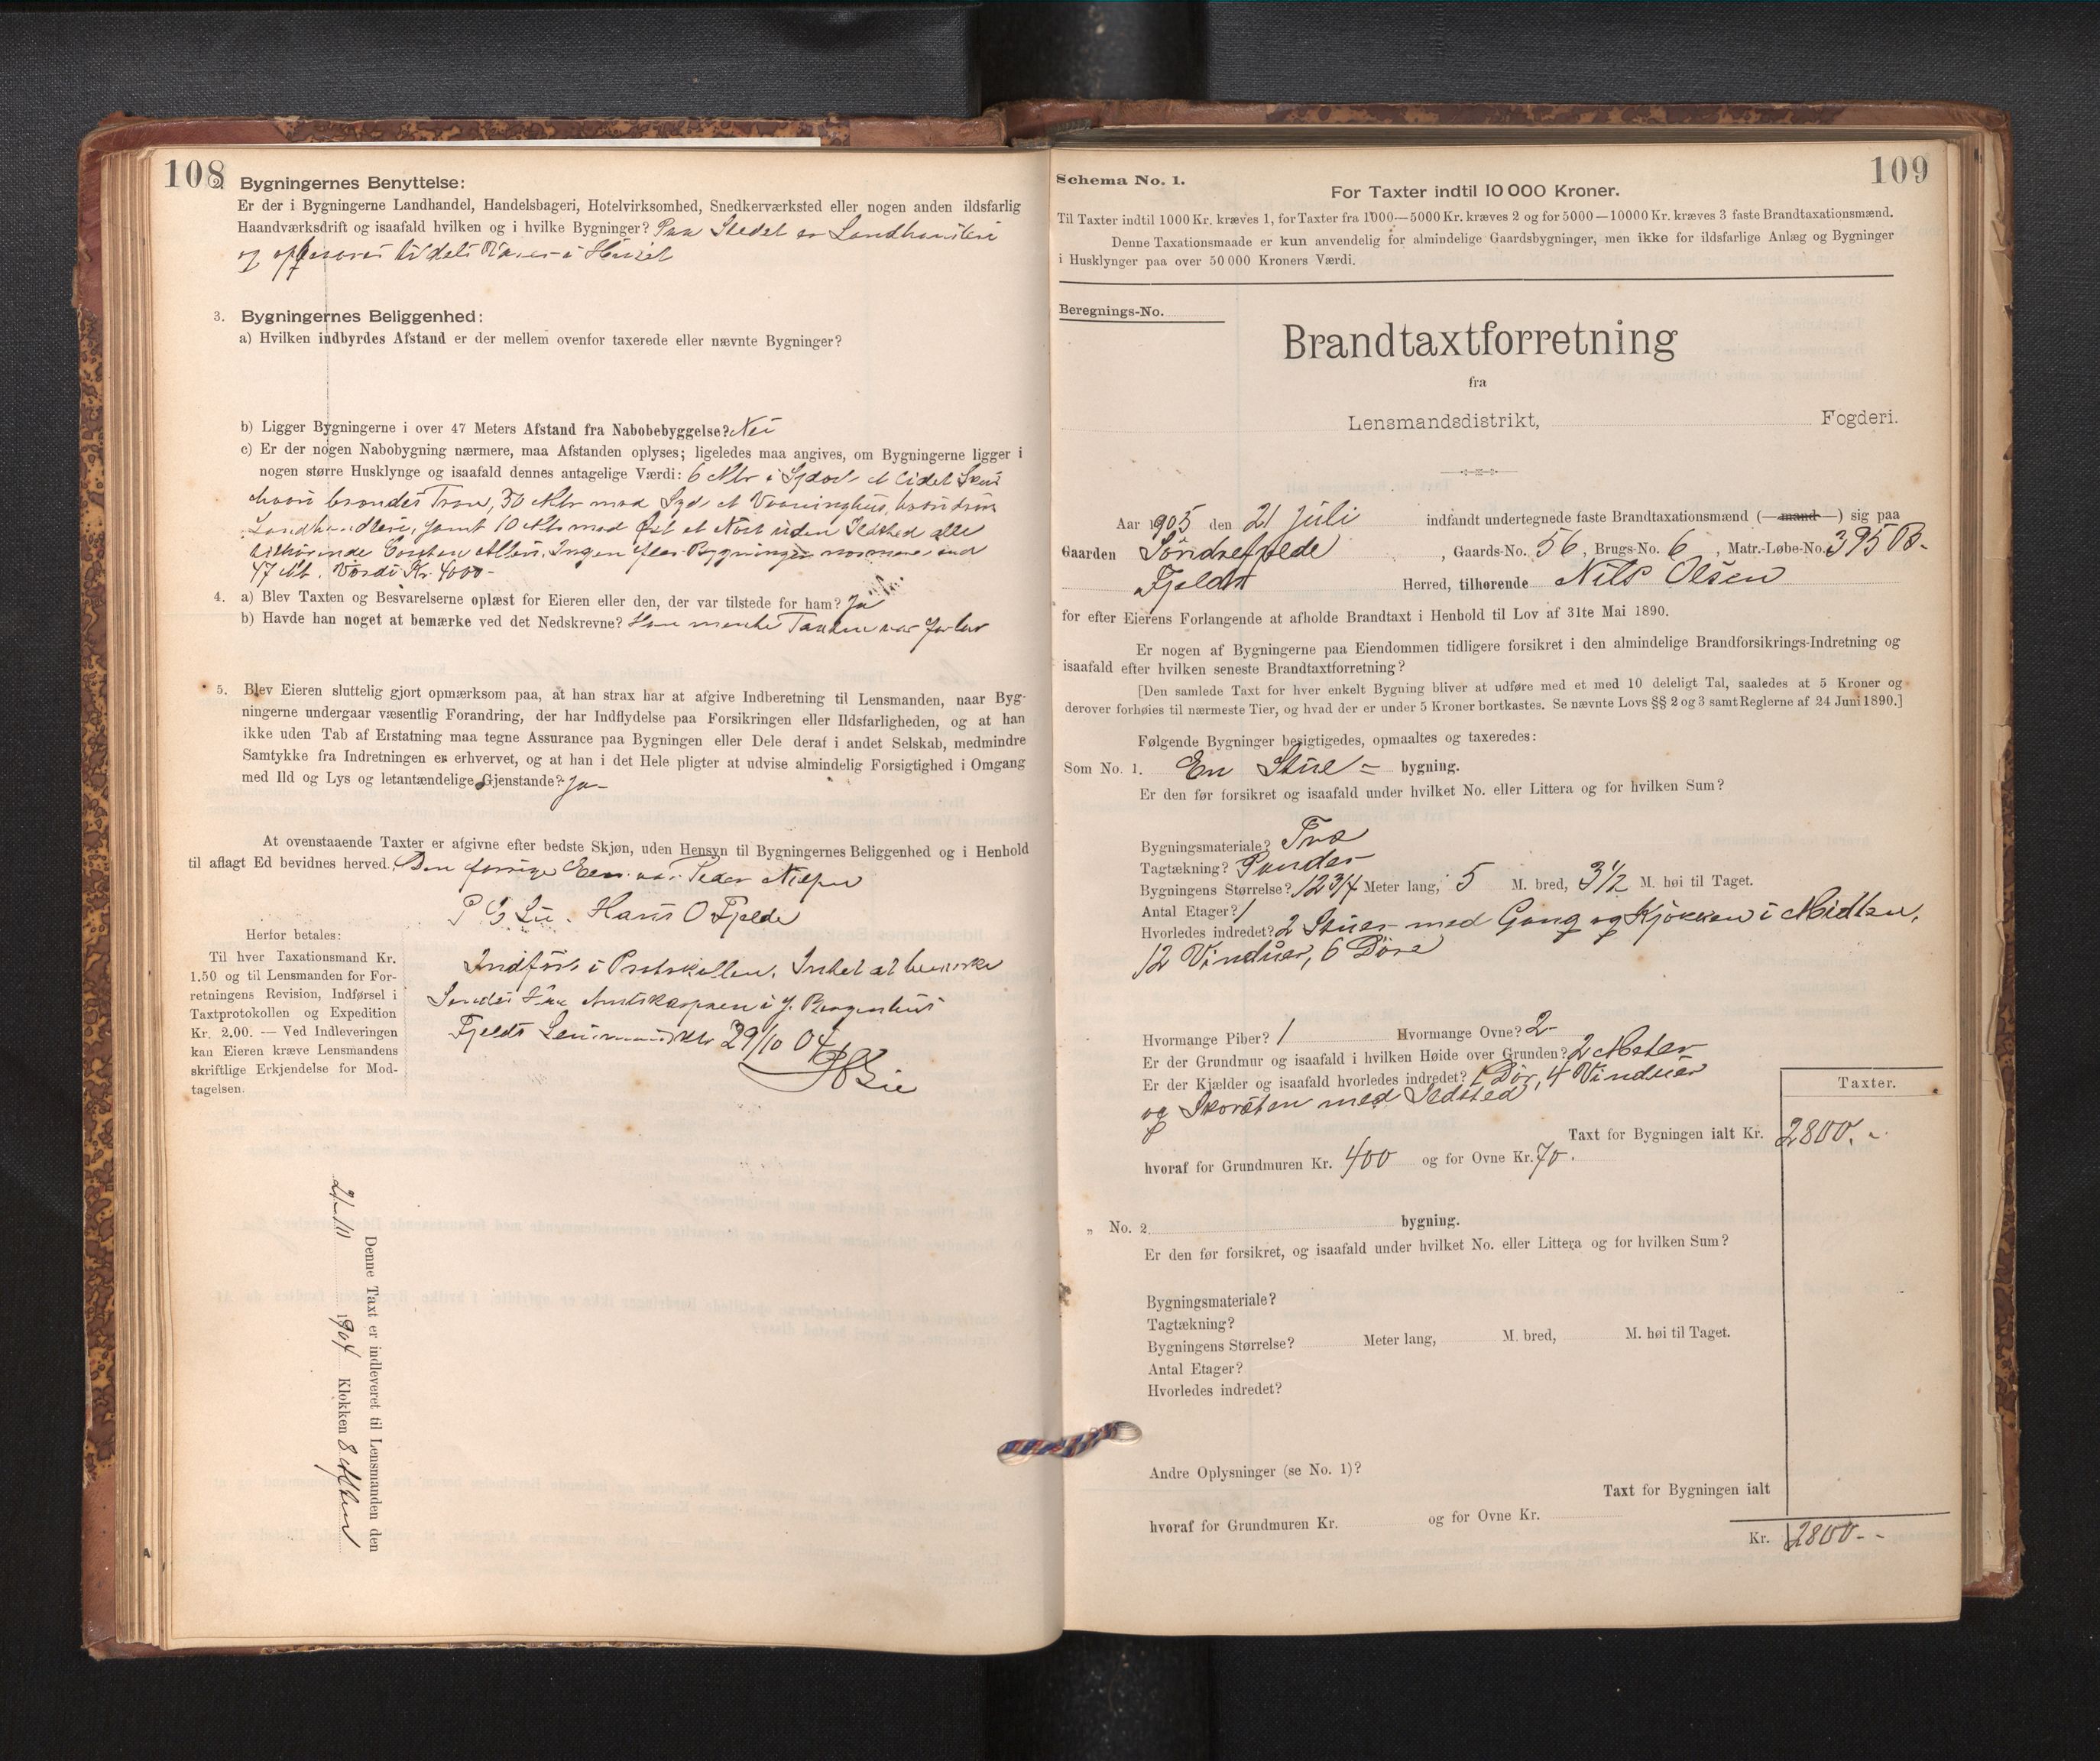 108
2. Bygningernes Benyttelse:
Er der i Bygningerne Landhandel, Handelsbageri, Hotelvirksomhed, Snedkerværksted eller nogen anden ildsfarlig
Haandværksdrift og isaafald hvilken og i hvilke Bygninger? Paa Stedet er Landhandleri
og opbevares tildels Varer i Huset
3. Bygningernes Beliggenhed:
a) Hvilken indbyrdes Afstand er der mellem ovenfor taxerede eller nævnte Bygninger?
b) Ligger Bygningerne i over 47 Meters Afstand fra Nabobebyggelse? Nei
c) Er der nogen Nabobygning nærmere, maa Afstanden oplyses; ligeledes maa angives, om Bygningerne ligger i
nogen større Husklynge og isaafald dennes antagelige Værdi: 6 Mtr i Sydost et lidet Skur
hvori brændes Tran, 30 Mtr mod Syd et Vaaninghus, hvori
Landhandleri, samt 10 Mtr mod Øst et Nøst uden Ildsted alle
tilhørende . Ingen flere Bygninger nærmere end
47 Mt. Værdi Kr. 4000-
4. a) Blev Taxten og Besvarelserne oplæst for Eieren eller den, der var tilstede for ham? Ja
b) Havde han noget at bemærke ved det Nedskrevne? Han mente Taxten var for lav
5. Blev Eieren sluttelig gjort opmærksom paa, at han strax har at afgive Indberetning til Lensmanden, naar Byg-
ningerne undergaar væsentlig Forandring, der har Indflydelse paa Forsikringen eller Ildsfarligheden, og at han
ikke uden Tab af Erstatning maa tegne Assurance paa Bygningen eller Dele deraf i andet Selskab, medmindre
Samtykke fra Indretningen er erhvervet, og at han i det Hele pligter at udvise almindelig Forsigtighed i Omgang
med Ild og Lys og letantændelige Gjenstande? Ja-
At ovenstaaende Taxter er afgivne efter bedste Skjøn, uden Hensyn til Bygningernes Beliggenhed og i Henhold
til aflagt Ed bevidnes herved. Den forrige Eier var Peder Nilsen
Hans O Fjelde
Herfor betales:
Til hver Taxationsmand Kr.
1.50 og til Lensmanden for For-
retningens Revision, Indførsel i
Taxtprotokollen og Expedition
Kr. 2.00. — Ved Indleveringen
kan Eieren kræve Lensmandens
skriftlige Erkjendelse for Mod-
tagelsen.
Indført i Protokollen. Intet at bemerke
Sendes Hr. Amtskassereren i S. Bergenhus
Fjelds 29/10 04
Denne Taxt er indleveret til Lensmanden den
1904 Klokken 8 Aften
109
Schema No. 1.
For Taxter indtil 10 000 Kroner.
Til Taxter indtil 1000 Kr. kræves 1, for Taxter fra 1000—5000 Kr. kræves 2 og for 5000—10000 Kr. kræves 3 faste Brandtaxationsmænd.
Denne Taxationsmaade er kun anvendelig for almindelige Gaardsbygninger, men ikke for ildsfarlige Anlæg og Bygninger
i Husklynger paa over 50 000 Kroners Værdi.
Beregnings-No.
Brandtaxtforretning
fra
Lensmandsdistrikt, Fogderi.
Aar 1905 den 21 Juli indfandt undertegnede faste Brandtaxationsmænd (—mand—) sig paa
Gaarden Søndrefjelde, Gaards-No. 56, Brugs-No. 6, Matr.-Løbe-No. 395 B.
Fjelds Herred, tilhørende Nils Olsen
for efter Eierens Forlangende at afholde Brandtaxt i Henhold til Lov af 31te Mai 1890.
Er nogen af Bygningerne paa Eiendommen tidligere forsikret i den almindelige Brandforsikrings-Indretning og
isaafald efter hvilken seneste Brandtaxtforretning?
[Den samlede Taxt for hver enkelt Bygning bliver at udføre med et med 10 deleligt Tal, saaledes at 5 Kroner og
derover forhøies til nærmeste Tier, og hvad der er under 5 Kroner bortkastes. Se nævnte Lovs §§ 2 og 3 samt Reglerne af 24 Juni 1890.]
Følgende Bygninger besigtigedes, opmaaltes og taxeredes:
Som No. 1. En Stue = bygning.
Er den før forsikret og isaafald under hvilket No. eller Littera og for hvilken Sum?
Bygningsmateriale? Træ
Tagtækning? Pander
Bygningens Størrelse? 12 3/4 Meter lang, 5 M. bred, 3 1/2 M. høi til Taget.
Antal Etager? 1
Hvorledes indredet? 2 Stuer med Gang og Kjøkken i Midten,
12 Vinduer, 6 Døre
Hvormange Piber? 1 Hvormange Ovne? 2-
Er der Grundmur og isaafald i hvilken Høide over Grunden? 2 Meter
Er der Kjælder og isaafald hvorledes indredet? 1 Dør, 4 Vinduer
og Skorsten med Ildsted
Taxter.
Taxt for Bygningen ialt Kr. 2800.-
hvoraf for Grundmuren Kr. 400 og for Ovne Kr. 70.
„ No. 2 bygning.
Er den før forsikret, og isaafald under hvilket No. eller Littera og for hvilken Sum?
Bygningsmateriale?
Tagtækning?
Bygningens Størrelse? Meter lang, M. bred, M. høi til Taget.
Antal Etager?
Hvorledes indredet?
Andre Oplysninger (se No. 1)?
Taxt for Bygningen ialt
hvoraf for Grundmuren Kr. og for Ovne Kr.
Kr. 2800--